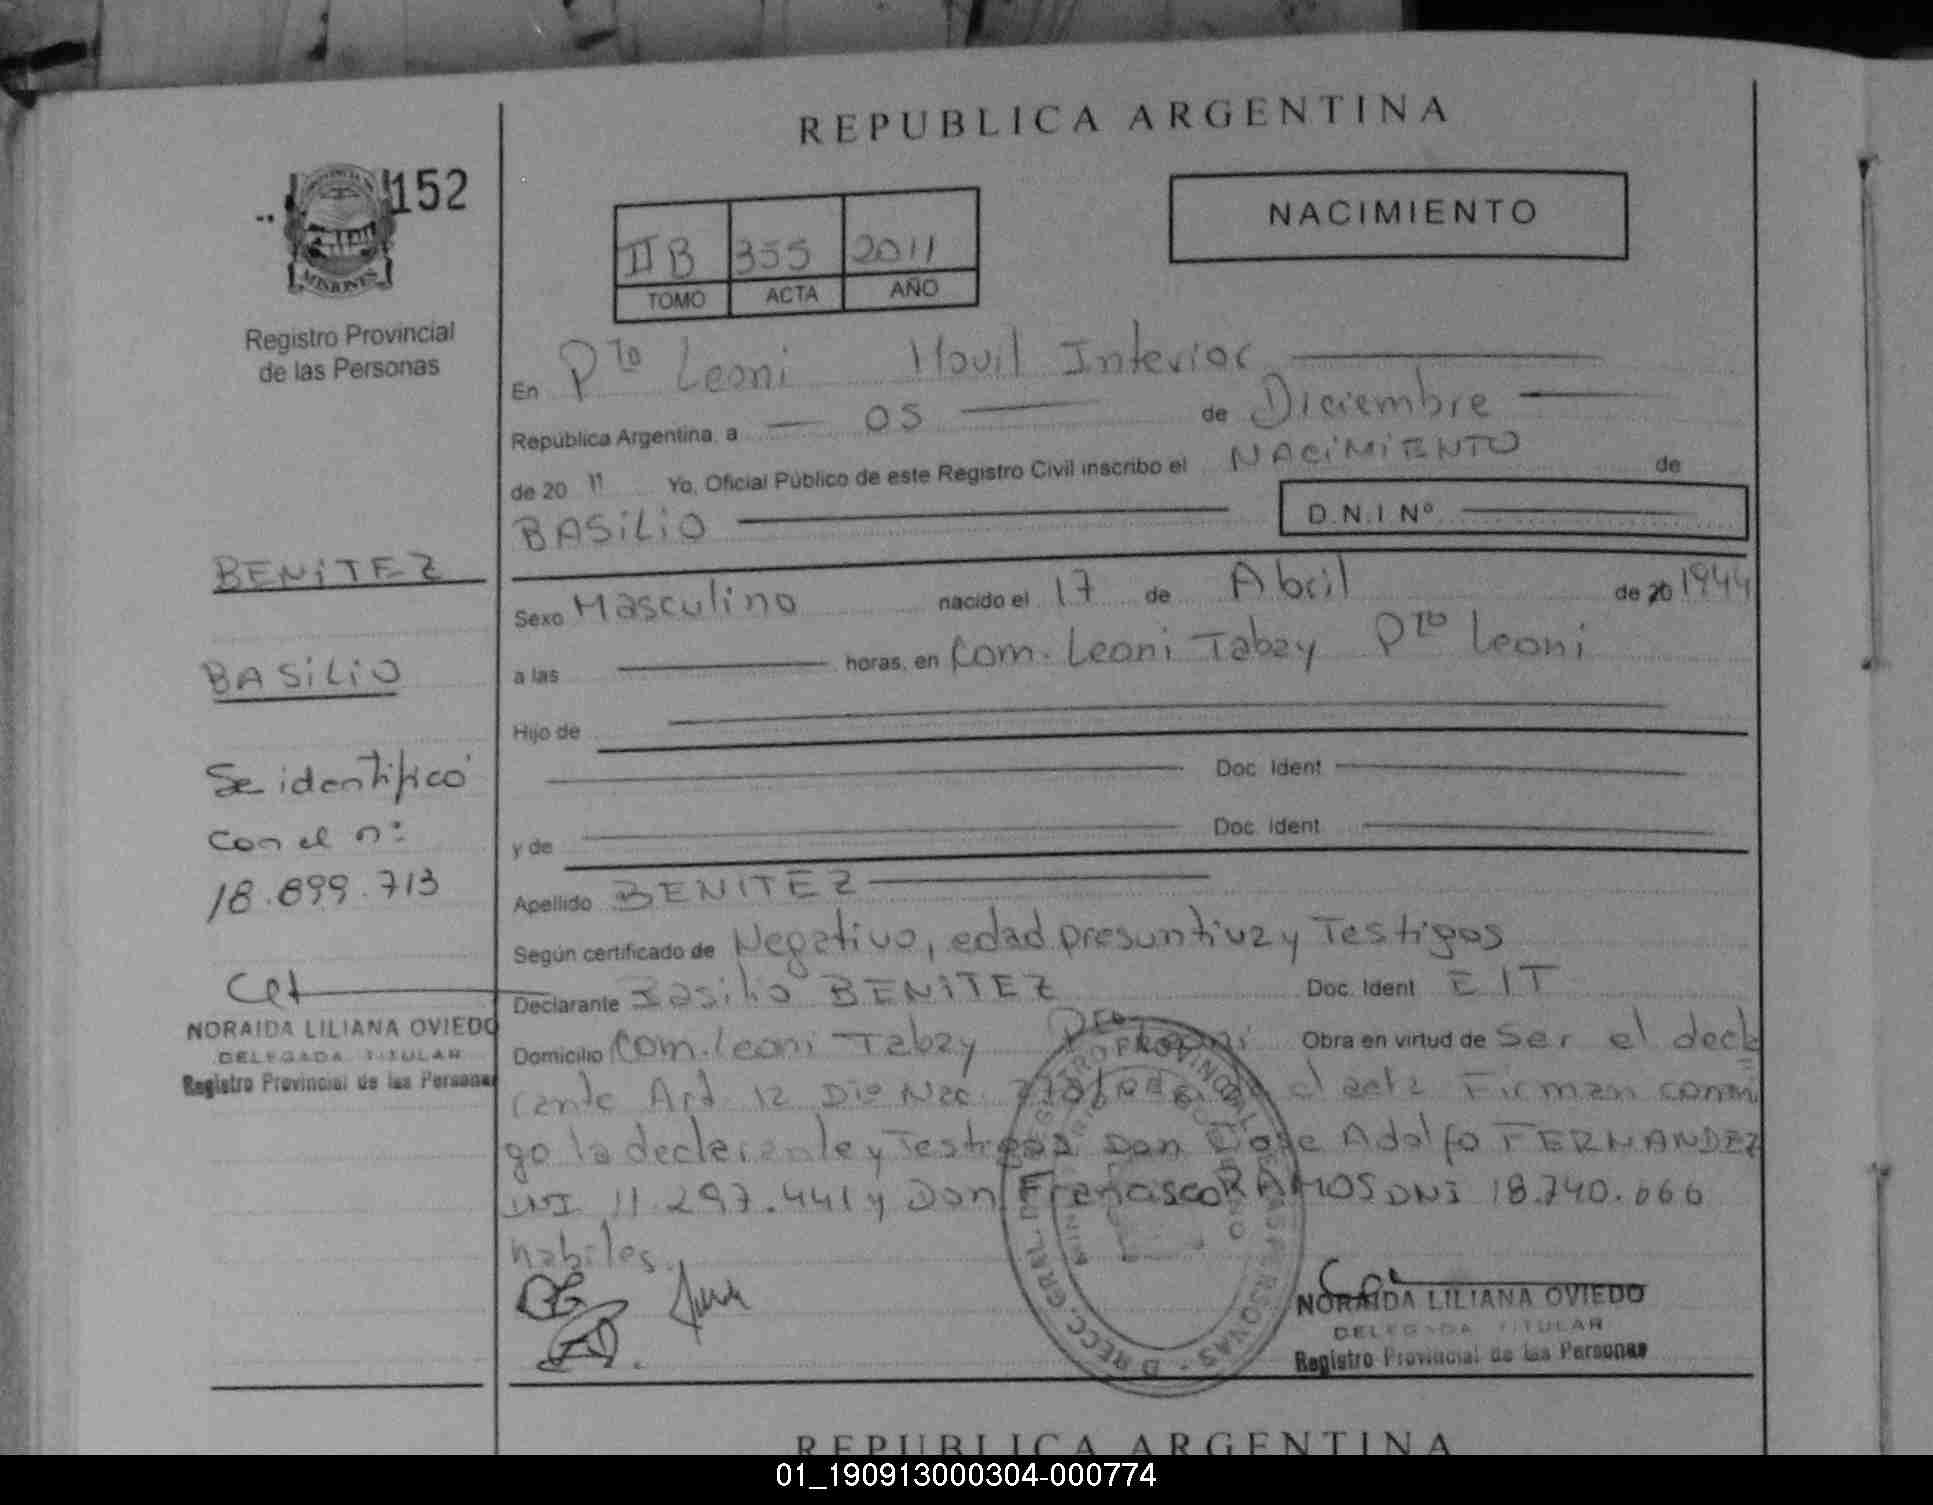 REPUBLICA ARGENTINA
152
MISIONES
Registro Provincial
de las Personas
NACIMIENTO
II B 355 2011
TOMO ACTA AÑO
En Pto Leoni Movil Interior
República Argentina, a 05 de Diciembre
de 20 11 Yo, Oficial Público de este Registro Civil inscribo el NACIMIENTO de
BASILIO D.N.I Nº
BENITEZ
BASILIO
Se identificó
con el nº
18.899.713
NORAIDA LILIANA OVIEDO
DELEGADA TITULAR
Registro Provincial de las Personas
Sexo Masculino nacido el 17 de Abril de 20 1944
a las horas, en Com. Leoni Tabay Pto Leoni
Hijo de
Doc. Ident
y de Doc. Ident
Apellido BENITEZ
Según certificado de Negativo, edad presuntiva y Testigos
Declarante Basilio BENITEZ Doc. Ident EIT
Domicilio Com. Leoni Tabay Pto Leoni Obra en virtud de Ser el decla
rante Art. 12 el acta Firman conmi
go la declarante y Testigos Don Jose Adolfo FERNANDEZ
DNI 11.297.441 y Don Francisco RAMOS DNI 18.740.066
habiles.
NORAIDA LILIANA OVIEDO
DELEGADA TITULAR
Registro Provincial de las Personas
REPUBLICA ARGENTINA
01_190913000304-000774